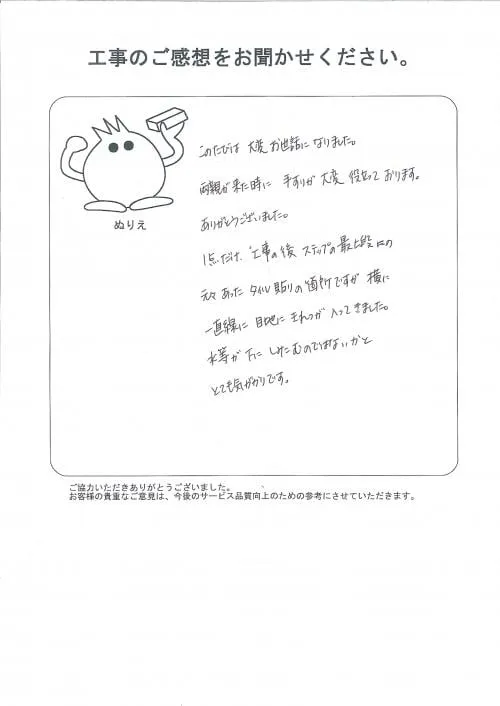 工事のご感想をお聞かせください。
ぬりえ
このたびは 大変 お世話に なりました。
両親が 来た時に 手すりが 大変 役立って おります。
ありがとうございました。
1点だけ、工事の後 ステップの最上段の
元々 あった タイル貼りの箇所ですが 横に
一直線に 目地に きれつが 入ってきました。
水等が 下に しみこむのではないかと
とても気がかりです。
ご協力いただきありがとうございました。
お客様の貴重なご意見は、今後のサービス品質向上のための参考にさせていただきます。